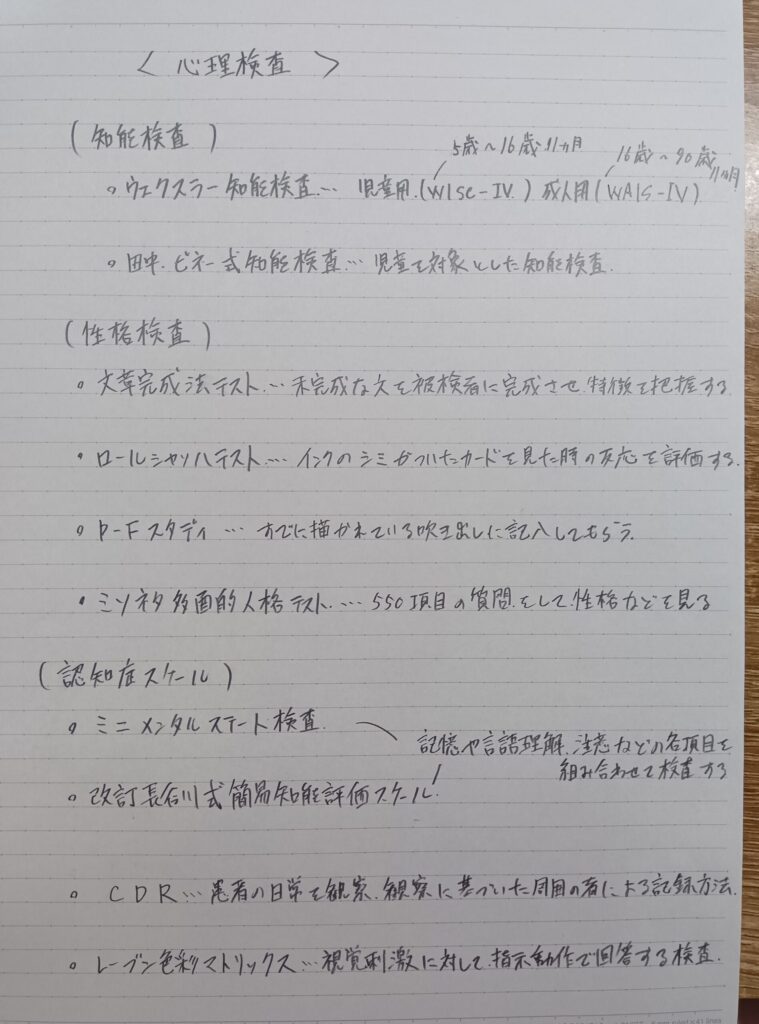 ＜ 心理検査 ＞
(知能検査)
5歳～16歳11ヵ月
16歳～90歳11ヵ月
○ ウェクスラー知能検査… 児童用.(WISC-IV.) 成人用(WAIS-IV)
○ 田中.ビネー式知能検査… 児童を対象とした知能検査.
(性格検査)
○ 文章完成法テスト… 未完成な文を被検者に完成させ.特徴を把握する.
○ ロールシャッハテスト… インクのシミがついたカードを見た時の反応を評価する.
○ P-Fスタディ … すでに描かれている吹き出しに記入してもらう.
○ ミソネタ多面的人格テスト.… 550項目の質問をして.性格などを見る
(認知症スケール)
○ ミニメンタルステート検査.
記憶や言語理解.注意などの各項目を
組み合わせて検査する
○ 改訂長谷川式簡易知能評価スケール.
○ CDR… 患者の日常を観察.観察に基づいた周囲の者による記録方法.
○ レーブン色彩マトリックス… 視覚刺激に対して.指示動作で回答する検査.